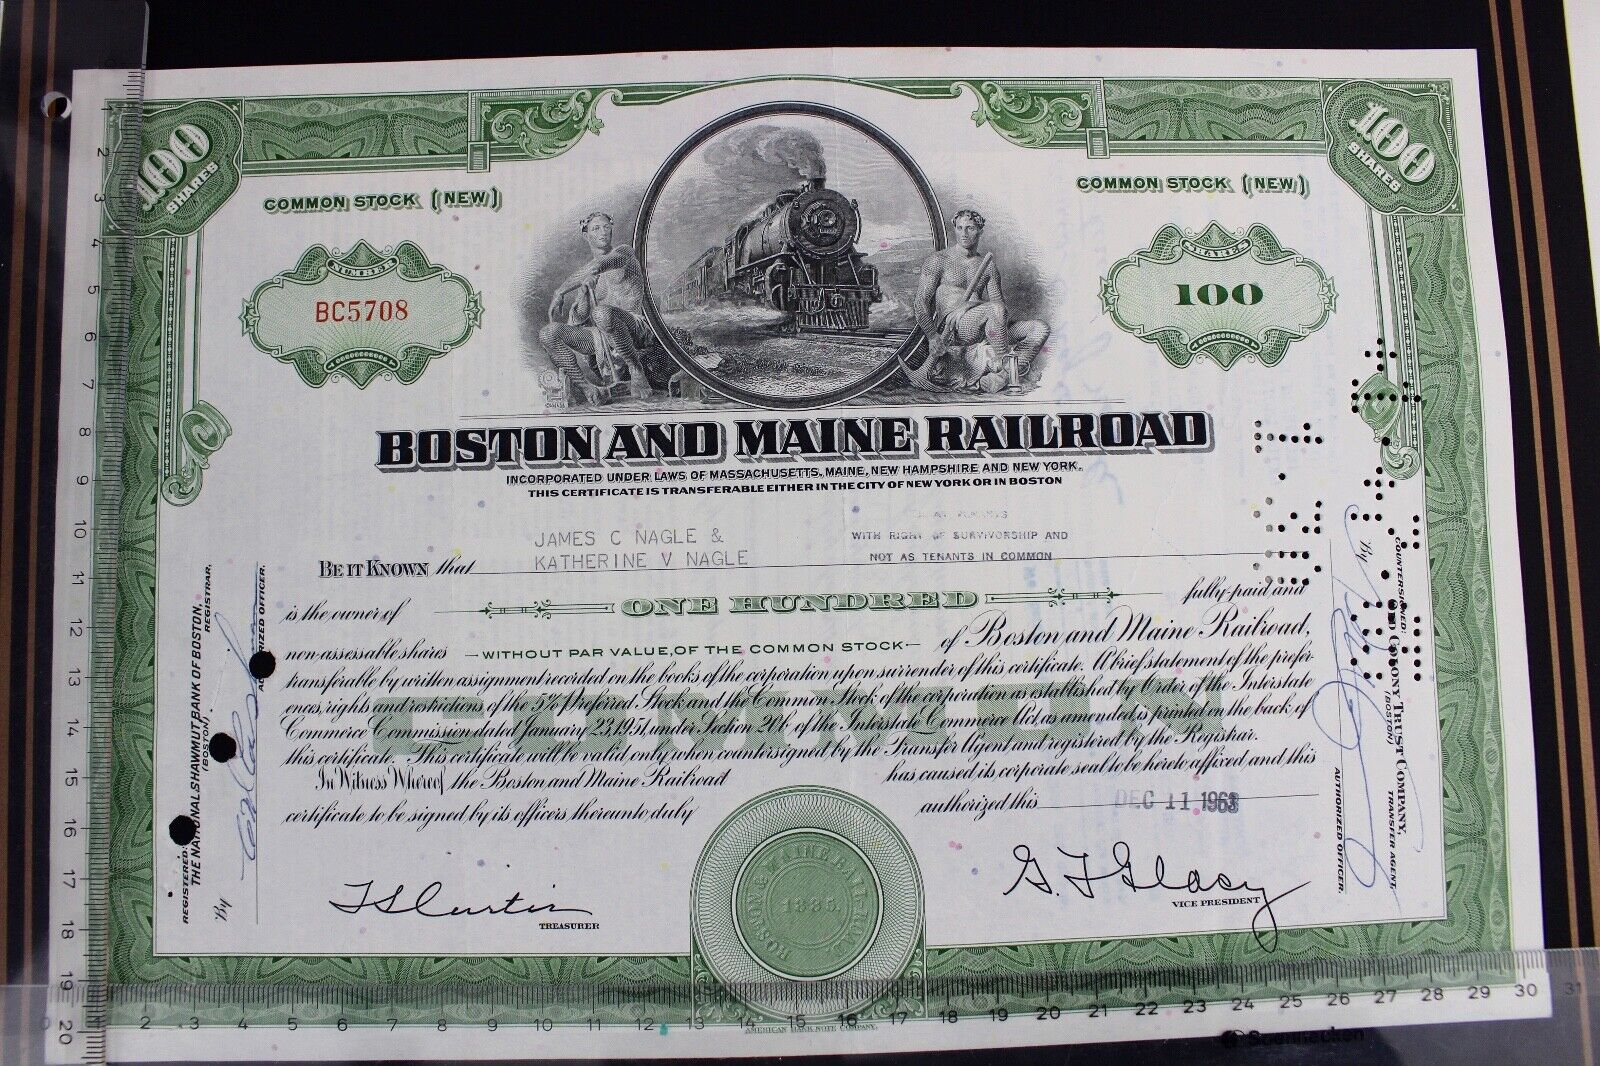 100
SHARES
100
SHARES
COMMON STOCK (NEW)
COMMON STOCK (NEW)
NUMBER
BC5708
SHARES
100
BOSTON AND MAINE RAILROAD
INCORPORATED UNDER LAWS OF MASSACHUSETTS, MAINE, NEW HAMPSHIRE AND NEW YORK.
THIS CERTIFICATE IS TRANSFERABLE EITHER IN THE CITY OF NEW YORK OR IN BOSTON
JAMES C NAGLE &
WITH RIGHT OF SURVIVORSHIP AND
BE IT KNOWN that KATHERINE V NAGLE NOT AS TENANTS IN COMMON
is the owner of ONE HUNDRED fully-paid and
non-assessable shares WITHOUT PAR VALUE, OF THE COMMON STOCK of Boston and Maine Railroad,
transferable by written assignment recorded on the books of the corporation upon surrender of this certificate. A brief statement of the prefer-
ences, rights and restrictions of the 5% Preferred Stock and the Common Stock of the corporation as established by Order of the Interstate
Commerce Commission dated January 23, 1951, under Section 20b of the Interstate Commerce Act, as amended, is printed on the back of
this certificate. This certificate will be valid only when countersigned by the Transfer Agent and registered by the Registrar.
In Witness Whereof the Boston and Maine Railroad has caused its corporate seal to be hereto affixed and this
certificate to be signed by its officers thereunto duly authorized this DEC 11 1963
T S Curtin
TREASURER
G. F. Glacy
VICE PRESIDENT
BOSTON & MAINE RAILROAD
1835
AMERICAN BANK NOTE COMPANY.
REGISTERED:
THE NATIONAL SHAWMUT BANK OF BOSTON,
(BOSTON) REGISTRAR,
By
AUTHORIZED OFFICER.
COUNTERSIGNED:
OLD COLONY TRUST COMPANY,
(BOSTON) TRANSFER AGENT,
By
AUTHORIZED OFFICER.
2
3
4
5
6
7
8
9
10
11
12
13
14
15
16
17
18
19
20
2 3 4 5 6 7 8 9 10 11 12 13 14 15 16 17 18 19 20 21 22 23 24 25 26 27 28 29 30 31
Soennecken